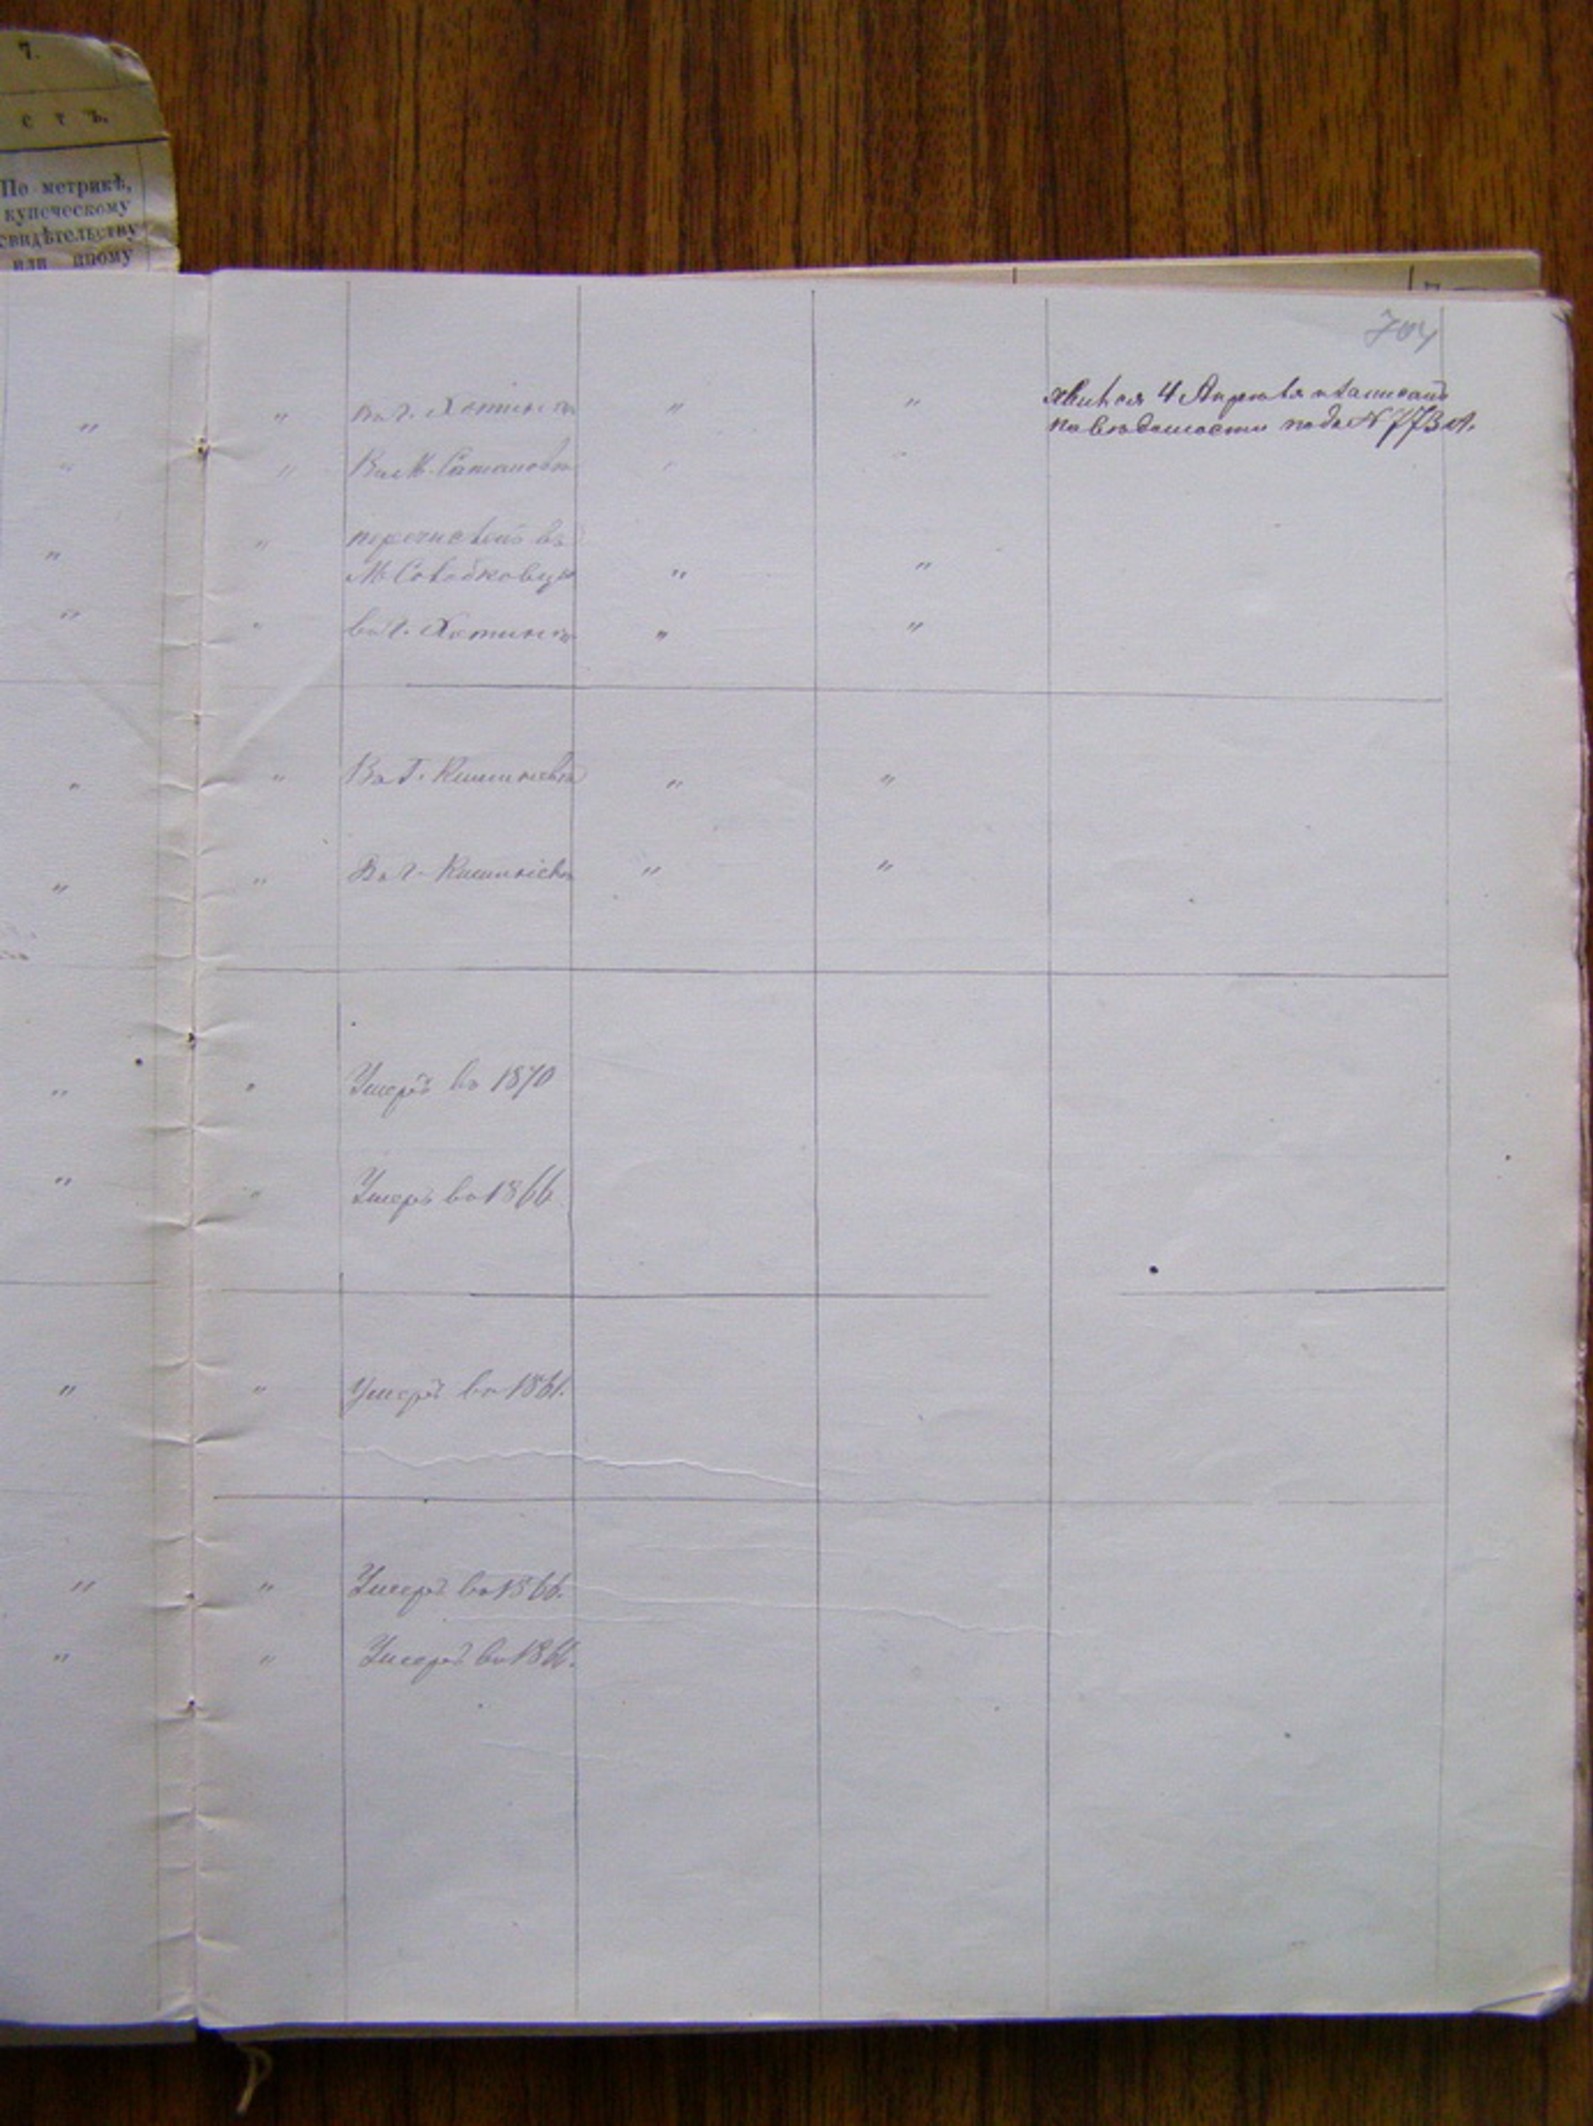 7.
с т ъ.
По метрикѣ,
купеческому
свидѣтельству
или иному
704
" " Въ г. Хотинѣ " " явился 4 Апрѣля и записанъ
по вѣдомости подъ №
" " Въ М. Сатановѣ " "
" " перечисленъ въ
М. Солобковцы " "
" " въ г. Хотинѣ " "
" " Въ г. Кишиневѣ " "
" " Въ г. Кишиневѣ " "
" " Умеръ въ 1870
" " Умеръ въ 1866
" " Умеръ въ 1861.
" " Умеръ въ 1866.
" " Умеръ въ 1866.